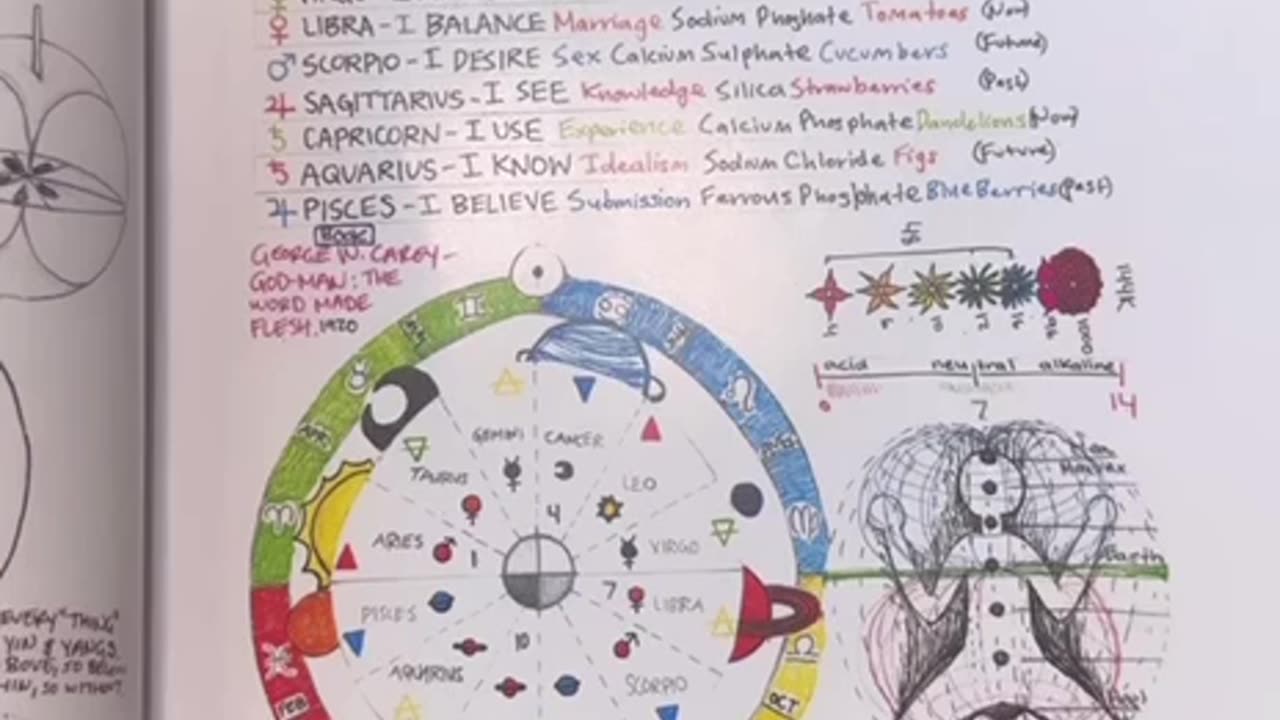 ♀ LIBRA - I BALANCE Marriage Sodium Phosphate Tomatoes (Now)
♂ SCORPIO - I DESIRE Sex Calcium Sulphate Cucumbers (Future)
♃ SAGITTARIUS - I SEE Knowledge Silica Strawberries (Past)
♄ CAPRICORN - I USE Experience Calcium Phosphate Dandelions (Now)
♄ AQUARIUS - I KNOW Idealism Sodium Chloride Figs (Future)
♃ PISCES - I BELIEVE Submission Ferrous Phosphate BlueBerries (Past)
BOOK
GEORGE W. CAREY -
GOD-MAN: THE
WORD MADE
FLESH. 1920
144K
1000
acid neutral alkaline
0 7 14
GEMINI CANCER
TAURUS LEO
4
ARIES 1 VIRGO
Earth
PISCES 7 LIBRA
10
AQUARIUS SCORPIO
APR
FEB OCT
EVERY "THING"
YIN & YANGS.